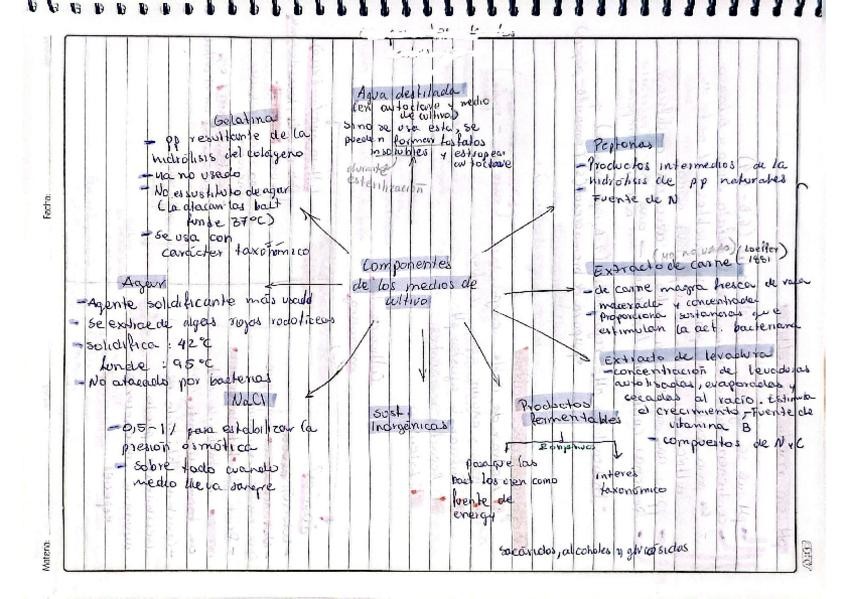 Fecha:
Materia:
Componentes
de los medios de
cultivo
Agua destilada
(en autoclave y medio
de cultivo)
Sino se usa esta, se
pueden formar fosfatos
insolubles y estropear
autoclave
durante
esterilización
Gelatina
- pp resultante de la
hidrólisis del colágeno
- ya no usado
- No es sustituto de agar
(la atacan las bact
funde 37°C)
- se usa con
carácter taxonómico
Agar
- Agente solidificante más usado
- se extrae de algas rojas rodofíceas
- solidifica : 42°C
funde : 95°C
- No atacado por bacterias
NaCl
- 0,5-1% para estabilizar la
presión osmótica
- sobre todo cuando
medio lleva sangre
Sust.
Inorgánicas
Productos
fermentables
2 objetivos
para que las
bact los usen como
fuente de
energy
interés
taxonómico
sacáridos, alcoholes y glucósidos
Peptonas
- Productos intermedios de la
hidrólisis de pp naturales
- Fuente de N
(ya no usado)
Extracto de carne (Loeffler
1881)
- de carne magra fresca de vaca
macerada y concentrada
- Proporciona sustancias que
estimulan la act. bacteriana
Extracto de levadura
- concentración de levaduras
autolisadas, evaporadas y
secadas al vacío. Estimula
el crecimiento, - Fuente de
vitamina B
- compuestos de N y C